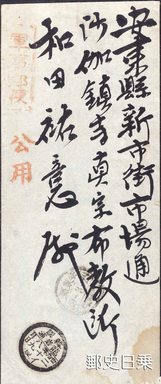 安東縣新市街市場通
沙伽鎮寺真宗布教所
和田祐意殿
軍事郵便
公用
郵史日乗